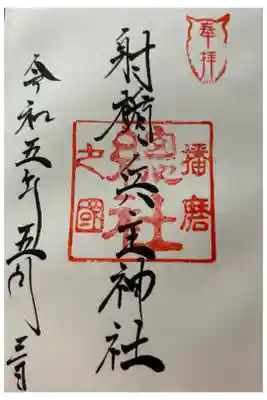 奉拝
播磨
之國
總社
射楯兵主神社
令和五年五月三日